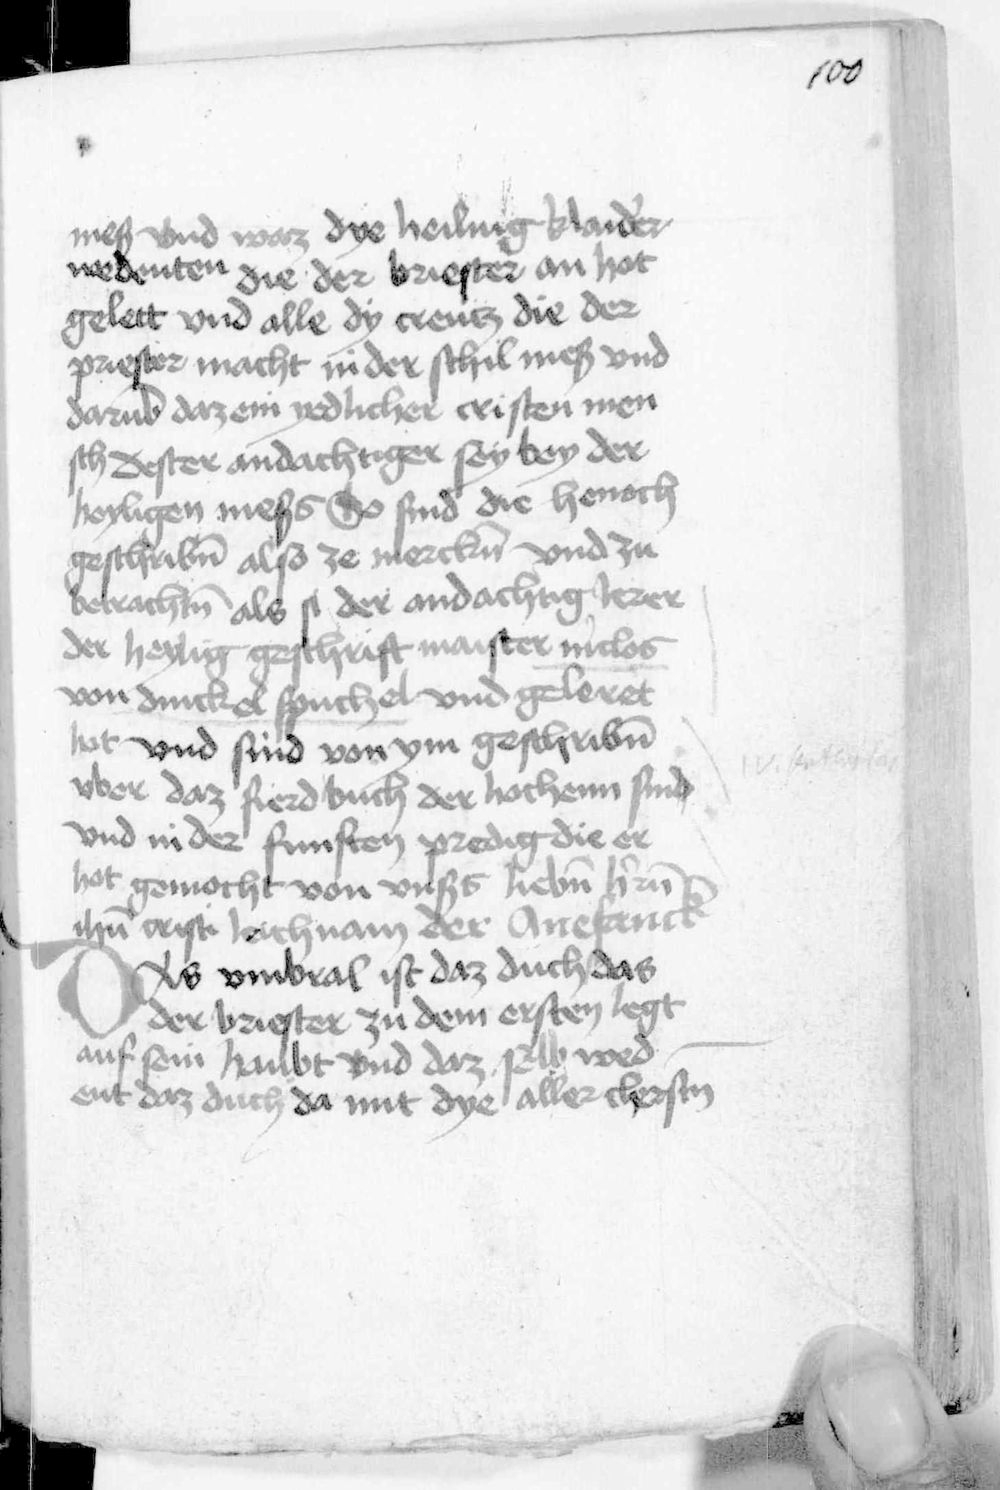 100
meß vnd waz dye heiling klaider
wedeuten die der briester an hot
gelett vnd alle dy creutz die der
priester macht in der sthil meß vnd
darub̄ daz ein yedlicher cristen men
sth dester andachtiger sey bey der
heyligen meßs So sind die henoch
gesthribn̄ also ze merckn̄ vnd zu
betrachtn̄ als si der andachtig lerer
der heylig gesthrift maister niclos
von dinckel spuchel vnd geleret
hot vnd sind von ym gesthribn̄
vber daz fierd buch der hochenn sind
vnd in der funften predig die er
hot gemocht von vnßs liebn̄ hern̄
ihū cristi leichnam der Anefanck
Das vmbral ist daz duch das
der briester zu dem ersten legt
auf sein haubt vnd daz selb wed
eut daz duch da mit dye aller clersten